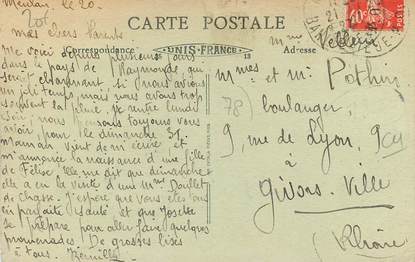 Meulan, le 20.
CARTE POSTALE
Correspondance
UNIS-FRANCE
Adresse
21
40c
13
Mes chers Parents
Me voici depuis plusieurs jours
dans le pays de Raymonde, qui
serait charmant si nous avions
un joli temps mais nous avons trop
souvent la pluie. Je rentre lundi
soir; nous pensons toujours vous
avoir, pour le dimanche 31.
Maman, vient de m'écrire et
m'annonce la naissance d'une fille
de Félise, elle me dit que dimanche
elle a eu la visite d'une Mme
de Chasse. J'espère que vous êtes tous
en parfaite santé et que Josette
se prépare pour aller faire quelques
promenades. De grosses bises
à tous.
Mmes et Mr Pothin
78
boulanger,
9, rue de Lyon, 9
à
Givors-Ville
(Rhône